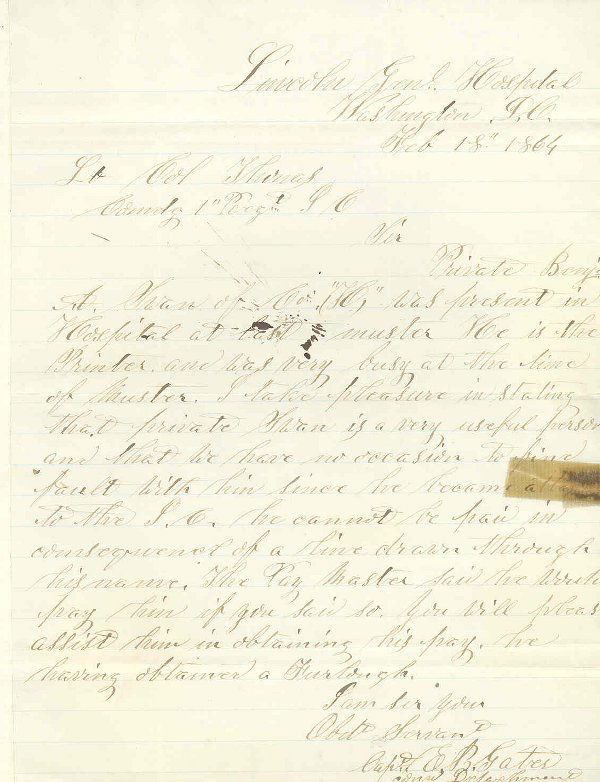 Lincoln Genl. Hospital
Washington D.C.
Feb 18" 1864
Lt Col Thomas
Comdg 1" Regt I C
Sir
Private Benj
A. Swan of Co. "H," was present in
Hospital at last muster He is the
Printer and was very busy at the time
of Muster. I take pleasure in stating
that private Swan is a very useful person
and that we have no occasion to find
fault with him since he became
to the I. C. he cannot be paid in
consequence of a line drawn through
his name. The Pay Master said he would
pay him if you said so. You will pleas
assist him in obtaining his pay. he
having obtained a Furlough.
I am sir your
Obdt Servant
Capt E. B. Gates
Comdg Detachment